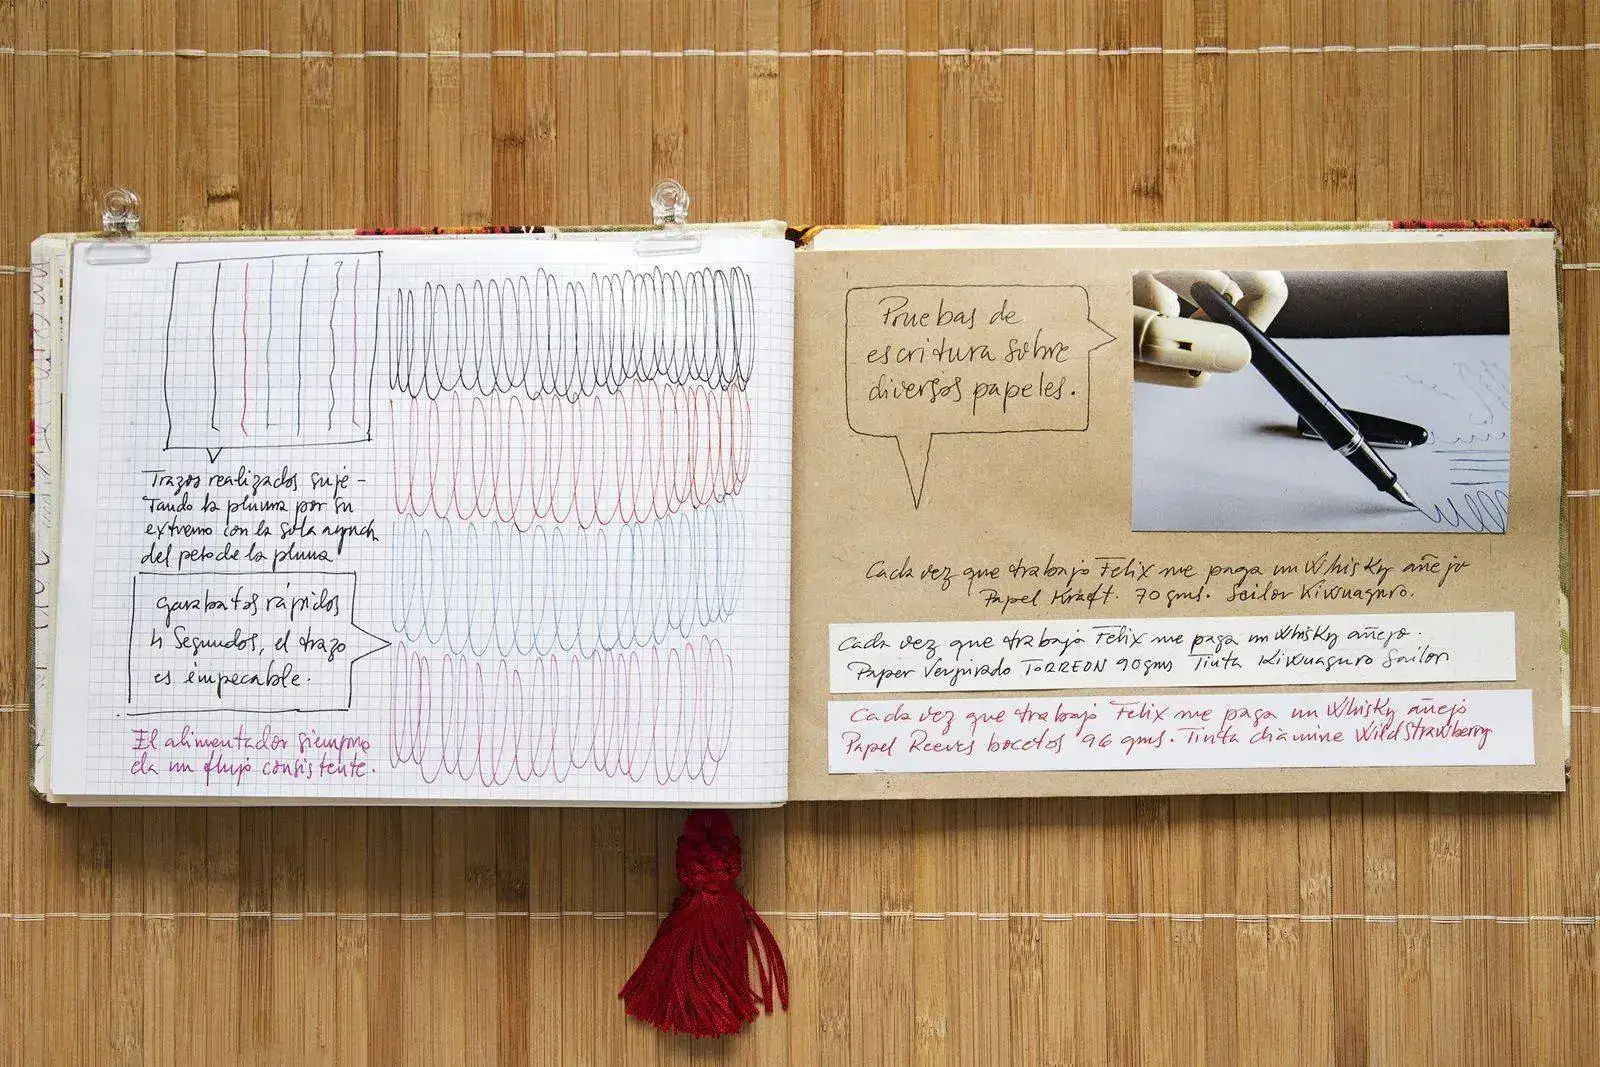 Trazos realizados suje-
tando la pluma por su
extremo con la sola ayuda
del peso de la pluma
garabatos rápidos
4 Segundos, el trazo
es impecable.
El alimentador siempre
da un flujo consistente.
Pruebas de
escritura sobre
diversos papeles.
Cada vez que trabajo Felix me paga un Whisky añejo
Papel Kraft. 70 gms. Sailor Kiwaguro.
Cada vez que trabajo Felix me paga un Whisky añejo.
Paper Verjurado TORREON 90gms Tinta Kiwaguro Sailor
Cada vez que trabajo Felix me paga un Whisky añejo
Papel Reeves bocetos 96 gms. Tinta diamine Wild Strawberry